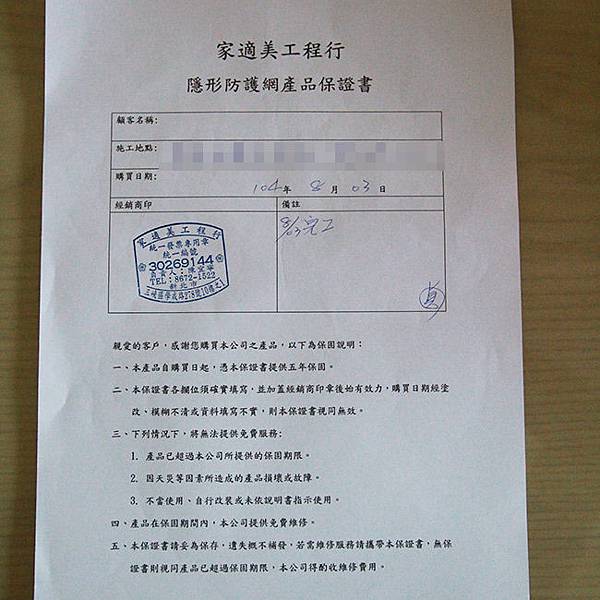 家適美工程行
隱形防護網產品保證書
顧客名稱:
施工地點:
購買日期: 104年 8月 03日
經銷商印
備註
家適美工程行
統一發票專用章
統一編號
30269144
負責人:陳宜華
TEL:8672-1522
新北市
三峽區學成路278號10樓之1
8/03完工
親愛的客戶,感謝您購買本公司之產品,以下為保固說明:
一、本產品自購買日起,憑本保證書提供五年保固。
二、本保證書各欄位須確實填寫,並加蓋經銷商印章後始有效力,購買日期經塗
改、模糊不清或資料填寫不實,則本保證書視同無效。
三、下列情況下,將無法提供免費服務:
1. 產品已超過本公司所提供的保固期限。
2. 因天災等因素所造成的產品損壞或故障。
3. 不當使用、自行改裝或未依說明書指示使用。
四、產品在保固期間內,本公司提供免費維修。
五、本保證書請妥為保存,遺失概不補發,若需維修服務請攜帶本保證書,無保
證書則視同產品已超過保固期限,本公司得酌收維修費用。